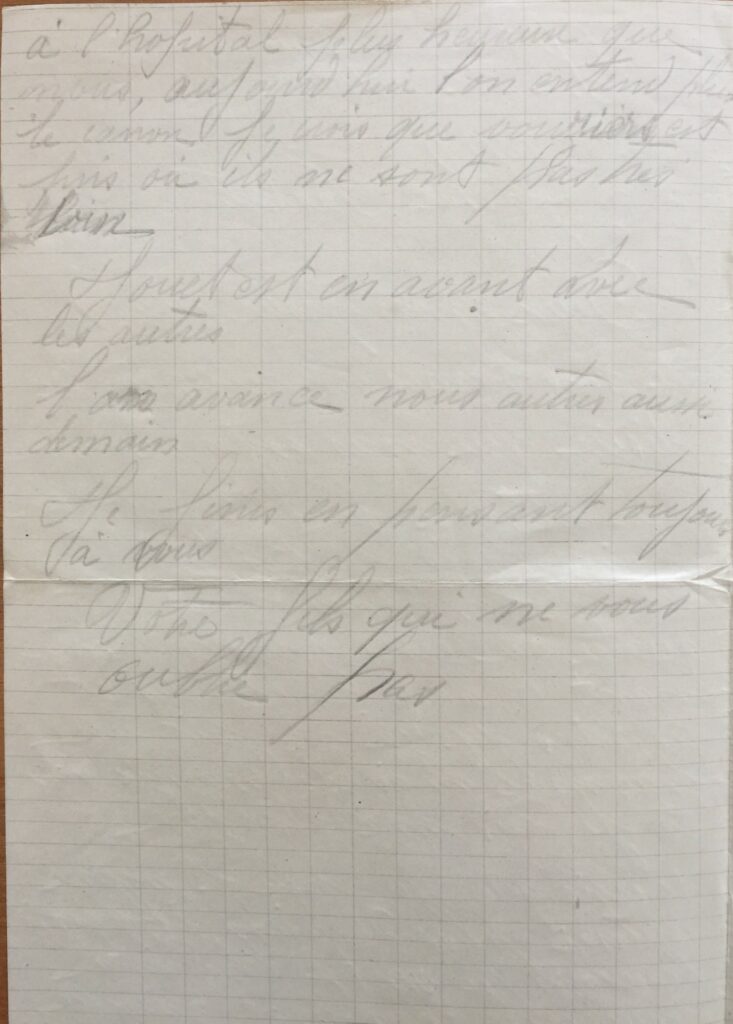 à l'hopital plus heureux que
nous, aujourd'hui l'on entend plus
le canon. Je crois que est
pris où ils ne sont pas très
loin
est en avant avec
les autres
l'on avance nous autres aussi
demain
Je finis en pensant toujours
à vous
Votre fils qui ne vous
oublie pas